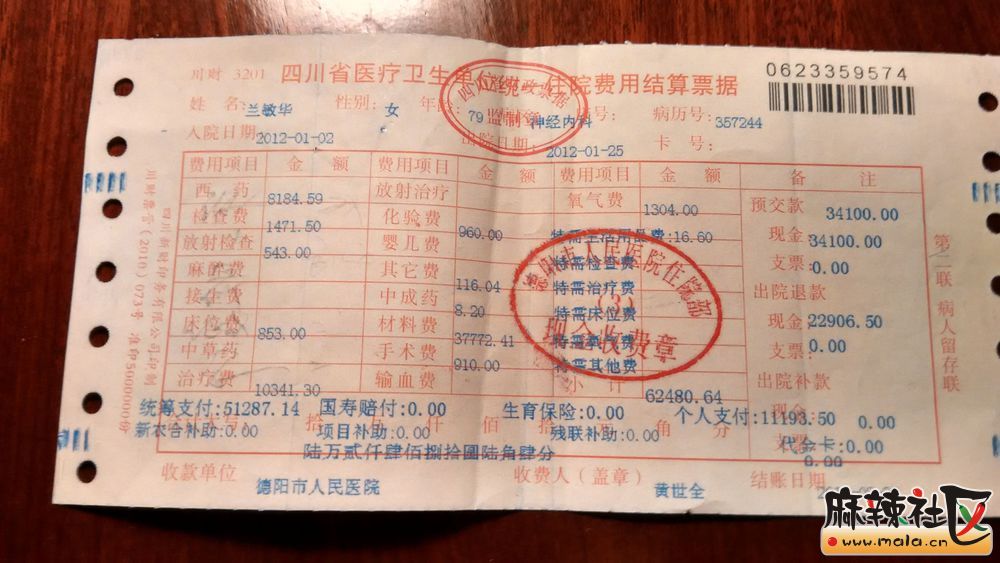 川财 3201 四川省医疗卫生单位 住院费用结算票据 0623359574
姓名: 兰敏华 性别: 女 年龄: 79 神经内科 病历号: 357244
入院日期: 2012-01-02 出院日期: 2012-01-25 卡号:
费用项目 金额 费用项目 金额 费用项目 金额 备注
西药 8184.59 放射治疗 氧气费 1304.00 预交款 34100.00
检查费 1471.50 化验费 960.00 特需生活用品费:16.60 现金: 34100.00
放射检查 543.00 婴儿费 特需检查费 支票: 0.00
麻醉费 其它费 116.04 特需治疗费 出院退款
接生费 中成药 8.20 特需床位费 现金: 22906.50
床位费 853.00 材料费 37772.41 支票: 0.00
中草药 手术费 910.00 特需其他费 出院补款
治疗费 10341.30 输血费 小计 62480.64 现金: 0.00
统筹支付:51287.14 国寿赔付:0.00 生育保险:0.00 个人支付:11193.50
新农合补助:0.00 项目补助:0.00 残联补助:0.00 代金卡:0.00
0.00
陆万贰仟肆佰捌拾圆陆角肆分
收款单位 德阳市人民医院 收费人(盖章) 黄世全 结账日期
第二联 病人留存联
德阳市人民医院住院部
(3)
现金收费章
监制章
麻辣社区
www.mala.cn